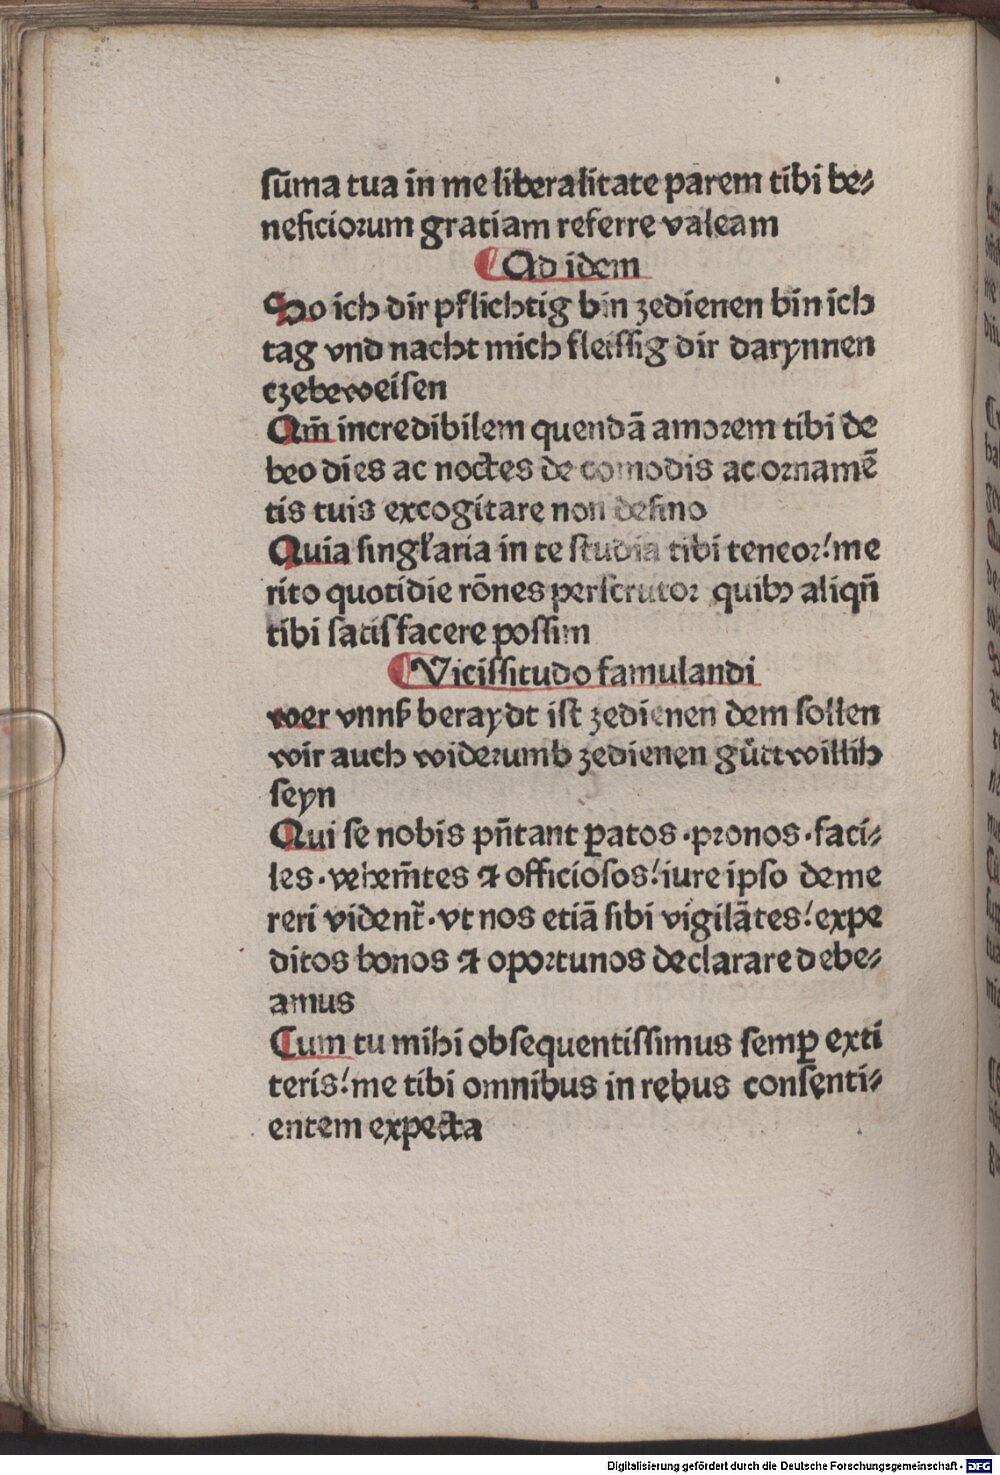 sūma tua in me liberalitate parem tibi be⸗
neficioꝛum gratiam referre valeam
Ad idem
So ich dir pflichtig bin zedienen bin ich
tag vnd nacht mich fleissig dir darynnen
czebeweisen
Qm̄ incredibilem quendā amoꝛem tibi de
beo dies ac noctes de comodis ac oꝛnamē
tis tuis excogitare non desino
Quia singl'aria in te studia tibi teneoꝛ: me
rito quotidie rōnes perscrutoꝛ quibꝰ aliqn̄
tibi satisfacere possim
Vicissitudo famulandi
wer vnns beraydt ist zedienen dem sollen
wir auch wideꝛumb zedienen gůttwillih
seyn
Qui se nobis pn̄tant ꝑatos · pꝛonos · faci⸗
les · vehem̄tes ⁊ officiosos: iure ipso deme
reri vident᷑ · vt nos etiā sibi vigilātes: expe
ditos bonos ⁊ opoꝛtunos declarare debe⸗
amus
Cum tu mihi obsequentissimus semꝑ exti
teris: me tibi omnibus in rebus consenti⸗
entem expecta
Digitalisierung gefördert durch die Deutsche Forschungsgemeinschaft - DFG